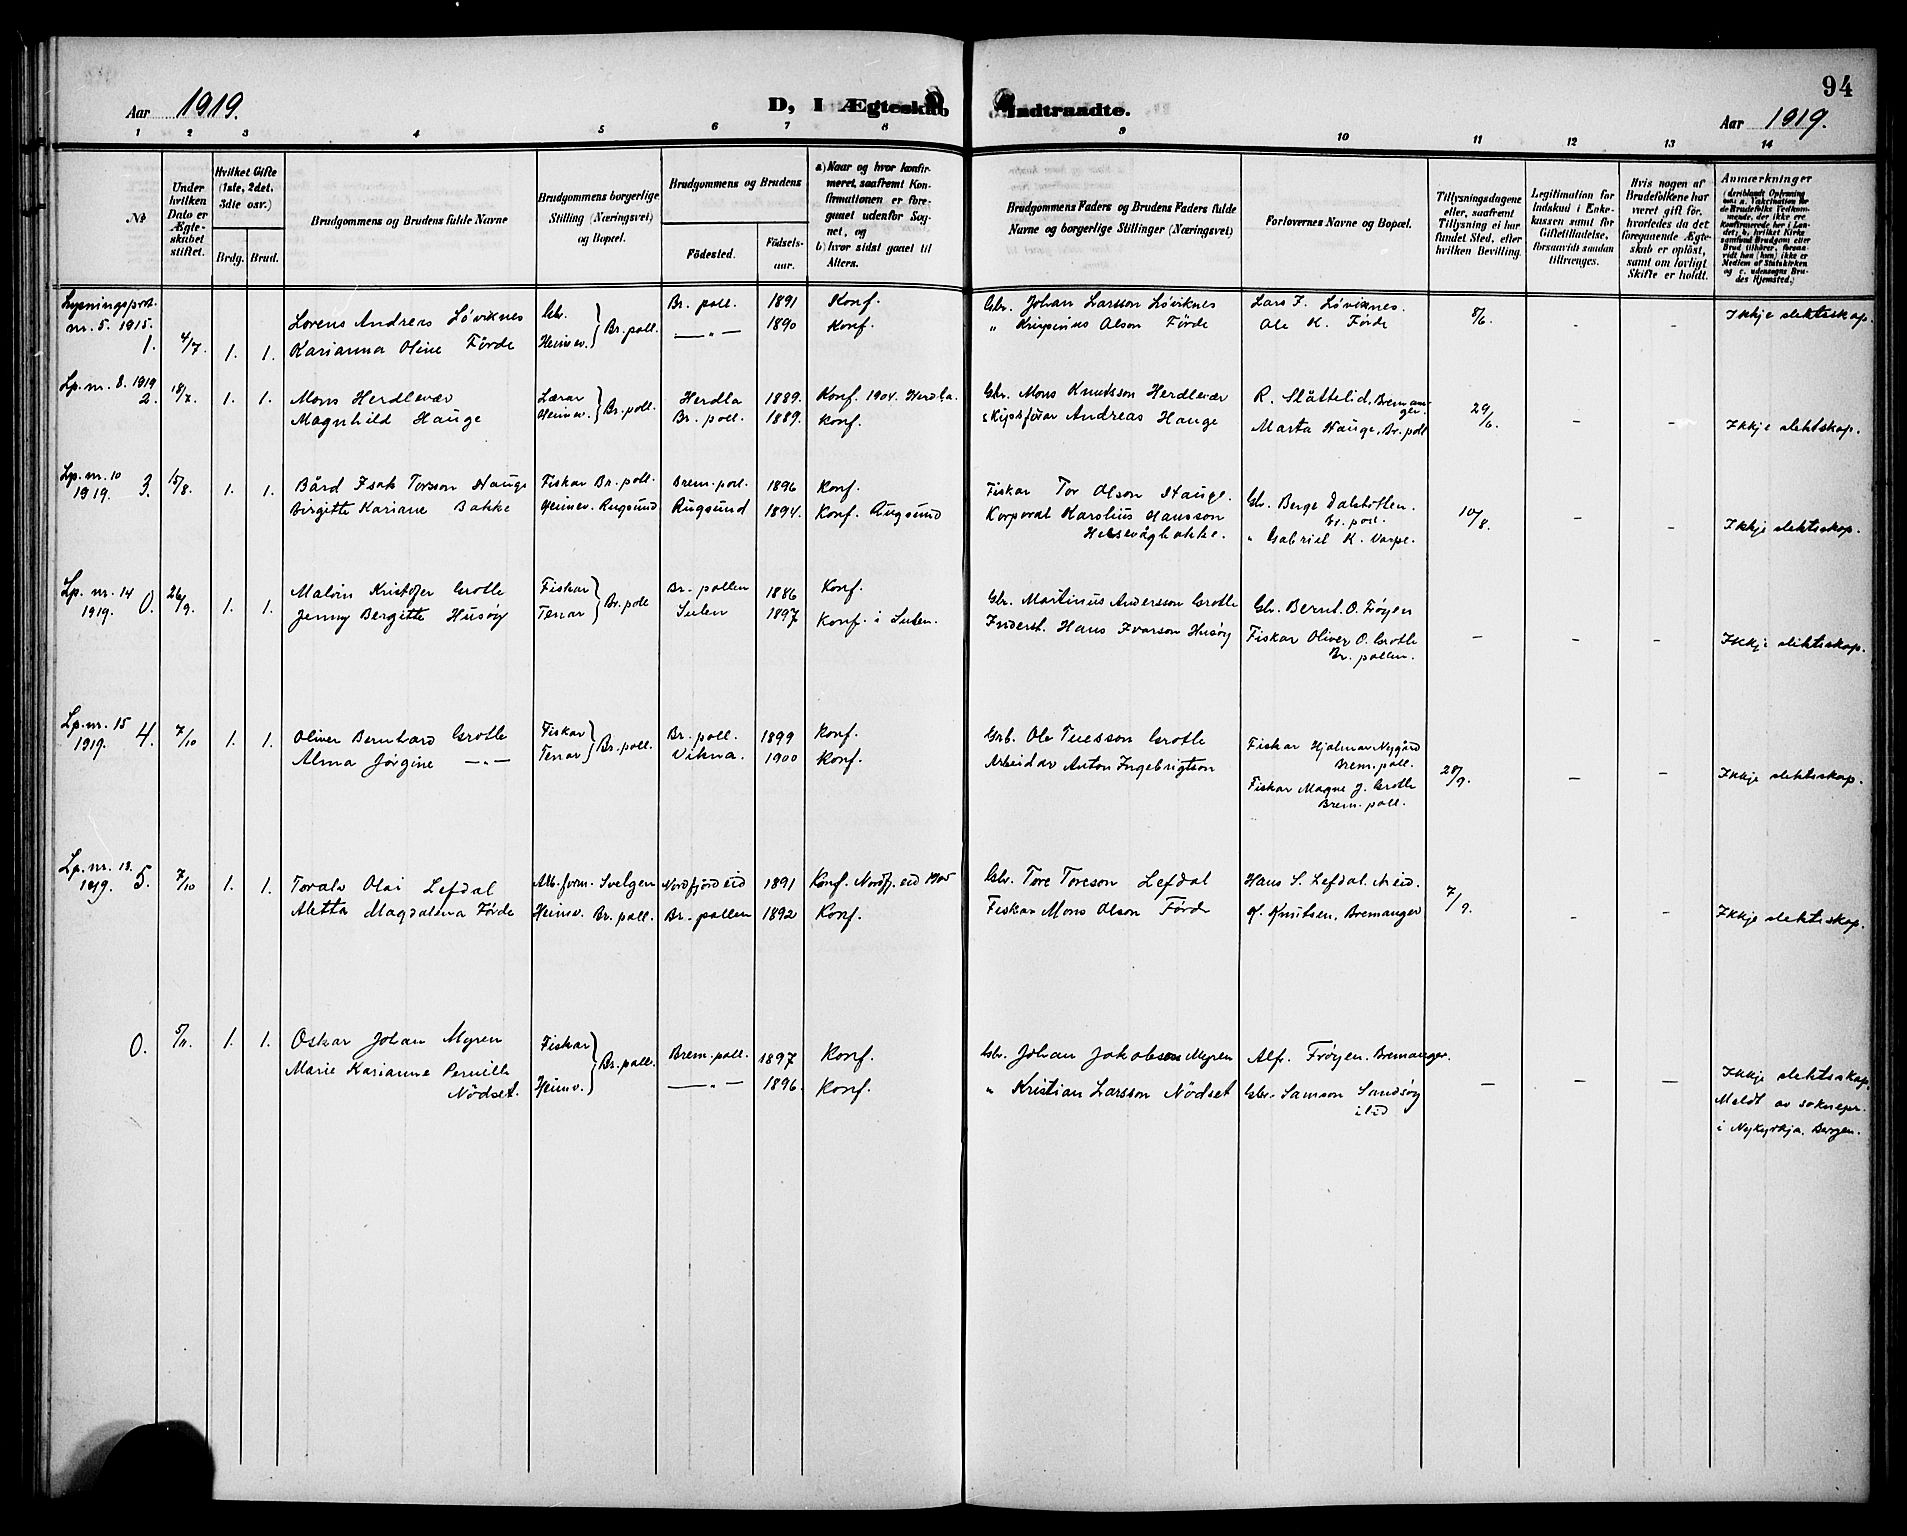 94
Aar 1919.
D, I Ægteskab
Indtraadte.
Aar 1919.
1 2 3 4 5 6 7 8 9 10 11 12 13 14
№
Under hvilken Dato er Ægteskabet stiftet.
Hvilket Gifte (1ste, 2det, 3die osv.)
Brdg. Brud.
Brudgommens og Brudens fulde Navne
Brudgommens borgerlige Stilling (Næringsvei) og Bopæl.
Brudgommens og Brudens
Födested. Födselsaar.
a) Naar og hvor konfirmeret, saafremt Konfirmationen er foregaaet udenfor Sognet, og
b) hvor sidst gaaet til Alters.
Brudgommens Faders og Brudens Faders fulde Navne og borgerlige Stillinger (Næringsvei)
Forlovernes Navne og Bopæl.
Tillysningsdagene eller, saafremt Tillysning ei har fundet Sted, efter hvilken Bevilling.
Legitimation for Indskud i Enkekassen samt for Giftetilladelse, forsaavidt saadan tiltrænges.
Hvis nogen af Brudefolkene har været gift för, hvorledes da det foregaaende Ægteskab er oplöst, samt om lovligt Skifte er holdt.
Anmærkninger
(deriblandt Opfyldning
Lysningsprot. nr. 5. 1915.
1. 4/7. 1. 1.
Lorens Andreas Løviknes Gbr. Br. poll. Br. poll. 1891 Konf. Gbr. Johan Larsson Løviknes Lars J. Løviknes 8/6. - - Ikkje slektskap.
Karianna Oline Förde Heimev. —"— 1890 Konf. " Olson Förde Ole K. Förde
Lp. nr. 8. 1919
2. 18/7. 1. 1.
Mons Herdlevær Lærar Br. poll. Herdla 1889. Konf. 1904. Herdla. Gbr. Mons Knudsson Herdlevær R. Slåttelid, Bremanger. 29/6. - - Ikkje slektskap.
Magnhild Hauge Heimev. Br. poll. 1889. Konf. Skipsförar Andreas Hauge Marta Hauge, Br. poll
Lp. nr. 10 1919.
3. 15/8. 1. 1.
Bård Isak Torsson Hauge Fiskar Br. poll. Brem. poll. 1896 Konf. Fiskar Tor Olson Hauge. Gbr. Berge Daletoften. Br. poll. 10/8. - - Ikkje slektskap.
Birgitte Kariane Bakke Heimev. Rugsund Rugsund 1894. Konf. Rugsund Korporal Karolius Hansson Hessevågbakke. " Gabriel K. Varpe.
Lp. nr. 14 1919.
0. 26/9. 1. 1.
Malvin Kristofer Grotle Fiskar Br. poll Br. pollen 1886 Konf. Gbr. Martinus Andersson Grotle Gbr. Bernt O. Frøyen - - - Ikkje slektskap.
Jenny Bergitte Husøy Tenar Sulen 1897 Konf. i Sulen. Inderst. Hans Ivarson Husøy Fiskar Oliver O. Grotle Br. pollen.
Lp. nr. 15 1919.
4. 7/10 1. 1.
Oliver Bernhard Grotle Fiskar Br. poll. Br. poll. 1899 Konf. Grb. Ole Grotle Fiskar Hjalmar Nygård Brem. poll. 28/9. - - Ikkje slektskap.
Alma Jørgine —"— Tenar Vikna. 1900 Konf. Arbeidar Anton Ingebrigtson Fiskar Magne J. Grotle Brem. poll.
Lp. nr. 13. 1919.
5. 7/10 1. 1.
Toralv Olai Lefdal Arb. form. Svelgen Nordfjordeid 1891 Konf. Nordfj. eid 1905 Gbr. Tore Toreson Lefdal Hans S. Lefdal. N. eid. 7/9. - - Ikkje slektskap.
Aletta Magdalena Förde Heimev. Br. poll. Br. pollen 1892 Konf. Fiskar Mons Olson Förde K. Knutsen. Bremanger
0. 5/11. 1. 1.
Oskar Johan Myren Fiskar Br. poll. Brem. poll. 1897 Konf. Gbr. Johan Jakobson Myren Alf. Frøyen. Bremanger. - - - Ikkje slektskap.
Marie Karianne Pernille Nödset. Heimev. —"— 1896. Konf. " Kristian Larsson Nödset Gbr. Samson Sandsøy Meldt av soknepr. i Nykyrkja. Bergen.